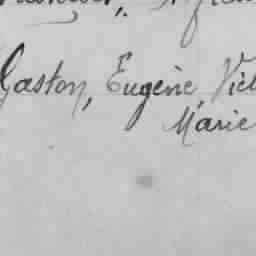 Gaston, Eugène, Vict
Marie